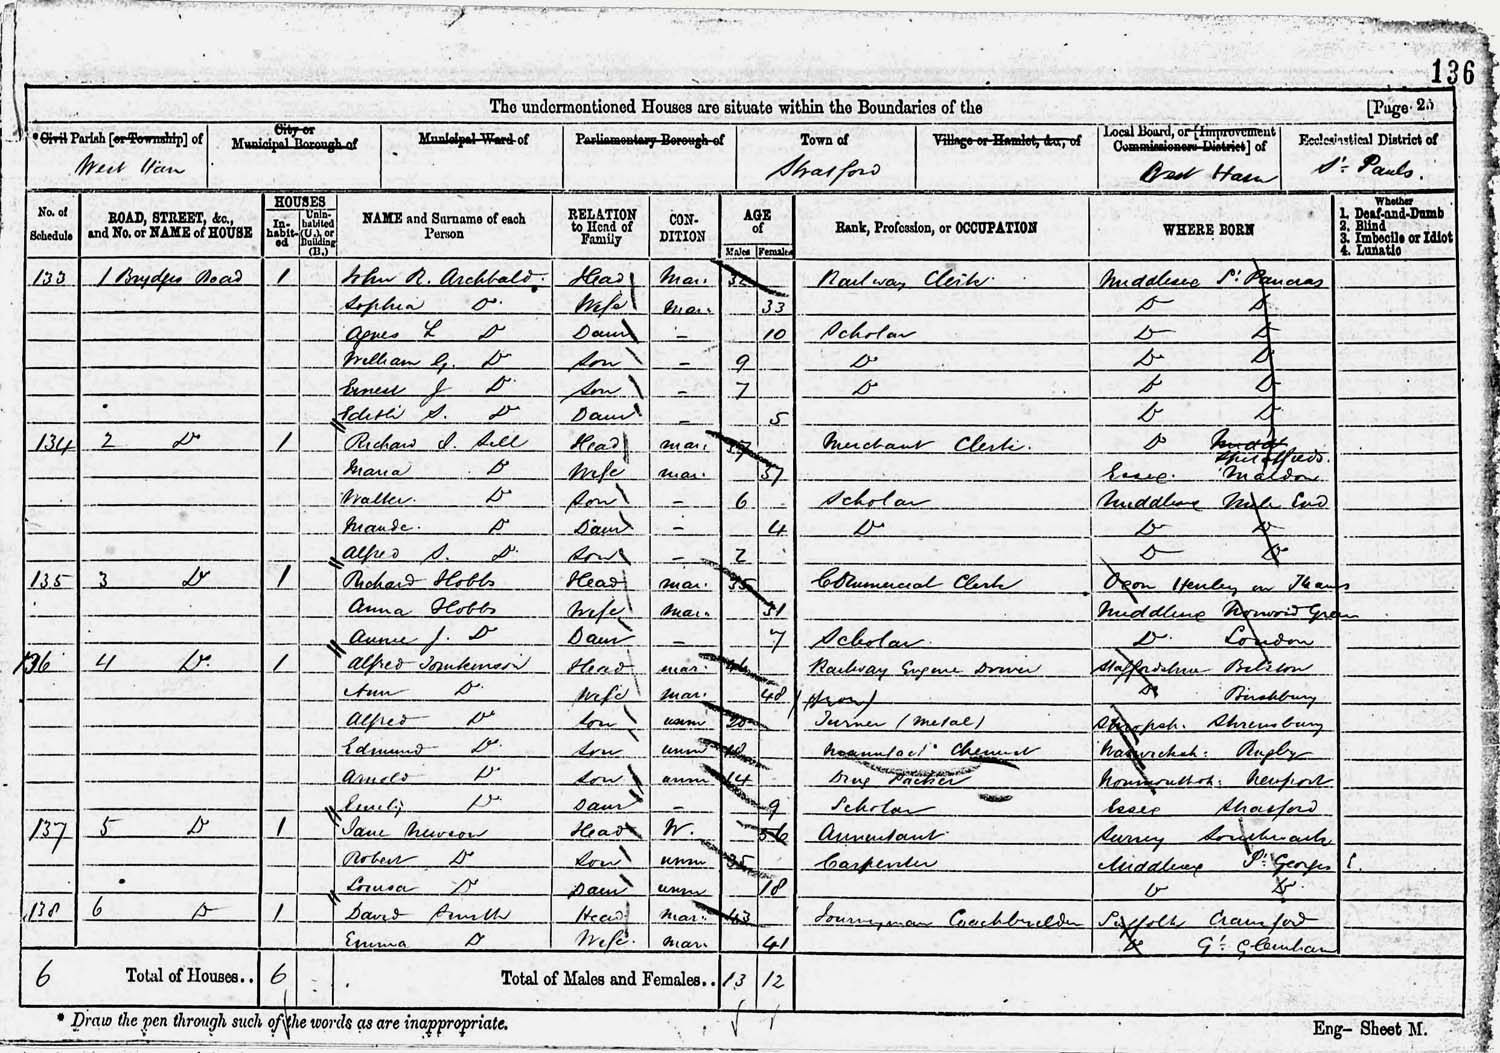 136
The undermentioned Houses are situate within the Boundaries of the [Page 25
* Civil Parish [or Township] of City or Municipal Borough of Municipal Ward of Parliamentary Borough of Town of Village or Hamlet, &c., of Local Board, or [Improvement Commissioners District] of Ecclesiastical District of
West Ham Stratford West Ham St. Pauls.
No. of Schedule ROAD, STREET, &c., and No. or NAME of HOUSE HOUSES In-habit-ed Unin-habited (U.), or Building (B.) NAME and Surname of each Person RELATION to Head of Family CON-DITION AGE of Males Females Rank, Profession, or OCCUPATION WHERE BORN Whether 1. Deaf-and-Dumb 2. Blind 3. Imbecile or Idiot 4. Lunatic
133 1 Brydges Road 1 John R. Archbald Head Mar. 32 Railway Clerk Middlesex St. Pancras
Sophia Do Wife Mar. 33 Do Do
Agnes L Do Daur - 10 Scholar Do Do
William G. Do Son - 9 Do Do Do
Ernest J Do Son - 7 Do Do Do
Edith S. Do Daur - 5 Do Do
134 2 Do 1 Richard J. Sell Head mar. 37 Merchant Clerk Do Spitalfields.
Maria Do Wife mar. 37 Essex Maldon
Walter Do Son - 6 Scholar Middlesex Mile End
Maude Do Daur - 4 Do Do Do
Alfred S. Do Son - 2 Do Do
135 3 Do 1 Richard Hobbs Head mar. 35 Commercial Clerk Oxon Henley on Thames
Anna Hobbs Wife Mar. 31 Middlesex Norwood Green
Annie J. Do Daur - 7 Scholar Do London
136 4 Do 1 Alfred Tomkinson Head mar. 46 Railway Engine Driver Staffordshire Bilston
Ann Do Wife Mar. 48 Do Bushbury
Alfred Do Son unm 20 Turner (Metal) Shropsh. Shrewsbury
Edmund Do Son unm 18 Manufact. Chemist Warwicksh: Rugby
Arnold Do Son unm 14 Drug Packer Monmouthsh: Newport
Emily Do Daur - 9 Scholar Essex Stratford
137 5 Do 1 Jane Newson Head W. 56 Annuitant Surrey Southwark
Robert Do Son unm 35 Carpenter Middlesex St. Georges
Louisa Do Daur unm 18 Do Do
138 6 Do 1 David Smith Head mar. 43 Journeyman Coachbuilder Suffolk Cransford
Emma Do Wife mar. 41 Do Gt. Glemham
6 Total of Houses.. 6 - Total of Males and Females.. 13 12
* Draw the pen through such of the words as are inappropriate.
Eng— Sheet M.